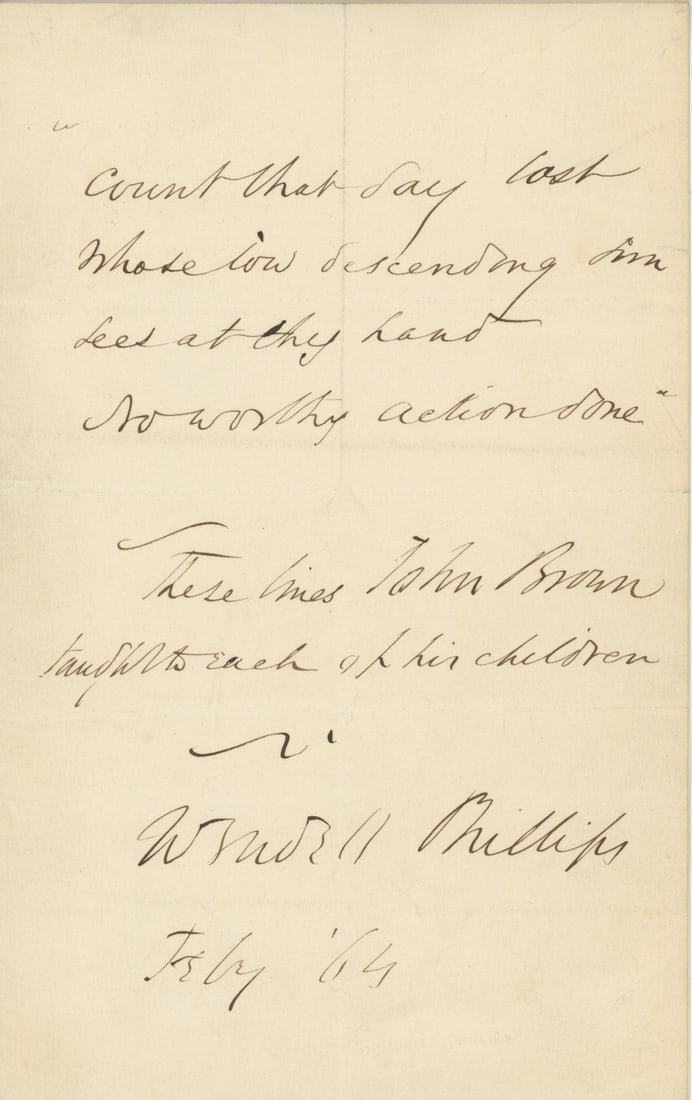 "
Count that day lost
Whose low descending sun
Sees at thy hand
No worthy action done"
These lines John Brown
taught to each of his children
Wendell Phillips
Feby '64